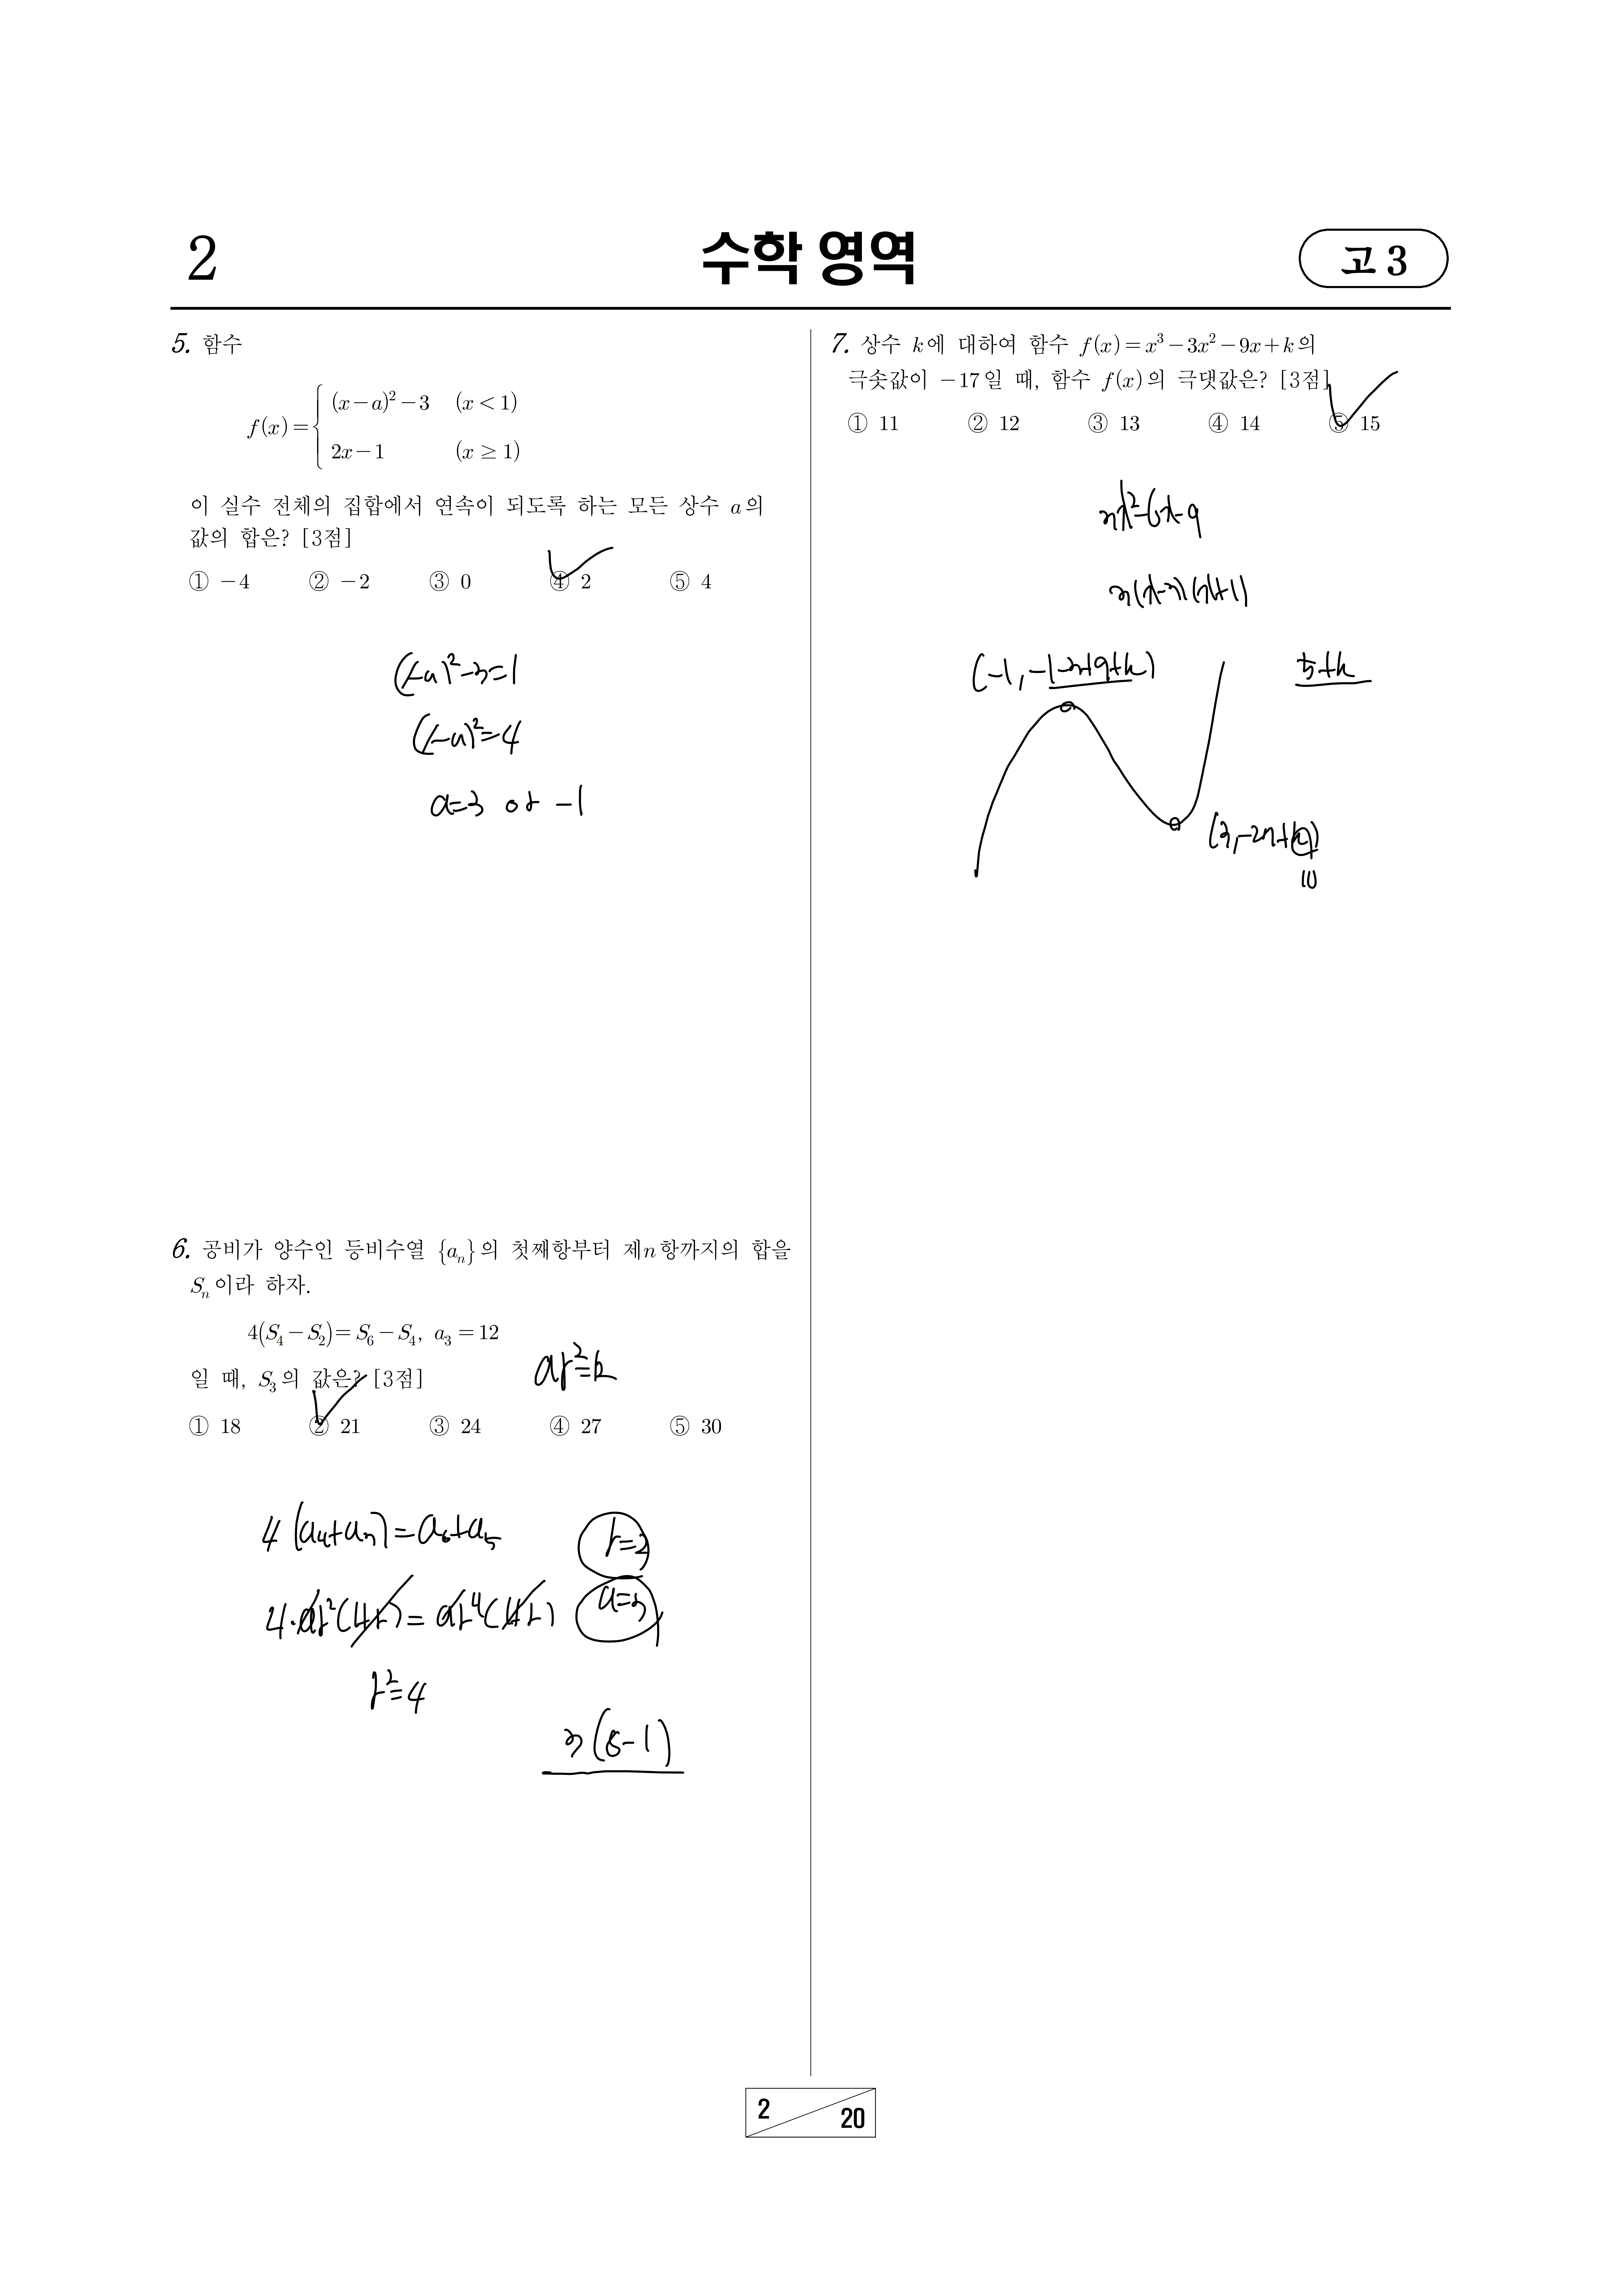 2
수학 영역
고 3
5. 함수
f(x) = { (x-a)²-3 (x < 1)
2x-1 (x ≥ 1)
이 실수 전체의 집합에서 연속이 되도록 하는 모든 상수 a의
값의 합은? [3점]
① -4 ② -2 ③ 0 ④ 2 ⑤ 4
(1-a)²-3=1
(1-a)²=4
a=3 or -1
6. 공비가 양수인 등비수열 {aₙ}의 첫째항부터 제n항까지의 합을
Sₙ이라 하자.
4(S₄-S₂)=S₆-S₄, a₃=12
일 때, S₃의 값은? [3점]
ar²=12
① 18 ② 21 ③ 24 ④ 27 ⑤ 30
4(a₄+a₃)=a₆+a₅
r=2
4·ar²(1+r)=ar⁴(1+r)
a=3
r²=4
3(8-1)
7. 상수 k에 대하여 함수 f(x)=x³-3x²-9x+k의
극솟값이 -17일 때, 함수 f(x)의 극댓값은? [3점]
① 11 ② 12 ③ 13 ④ 14 ⑤ 15
3x²-6x-9
3(x-3)(x+1)
(-1, -1-3+9+k)
5+k
(3, -27+k)
10
2
20